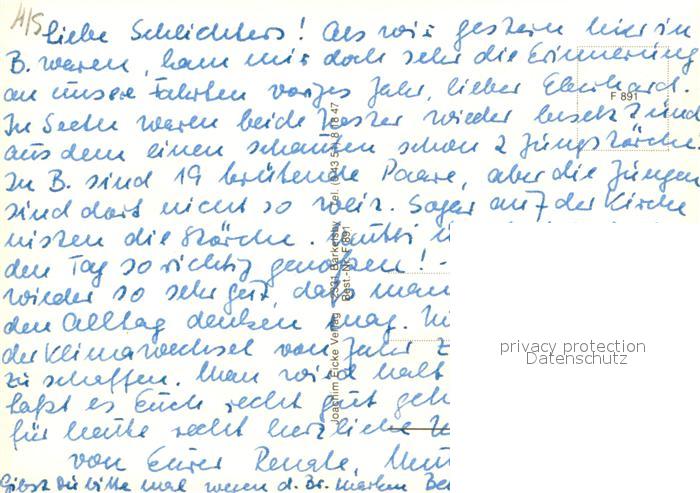 A/S
Liebe Schlichters! Als wir gestern hier in
B. waren, kam mir doch sehr die Erinnerung
an unsere Fahrten voriges Jahr, lieber Eberhard.
In Seeth waren beide Horste wieder besetzt und
aus dem einen schauten schon 2 Jungstörche.
In B. sind 19 brütende Paare, aber die Jungen
sind dort nicht so weit. Sogar auf der Kirche
nisten die Störche. Mutti
den Tag so richtig genossen! -
wieder so sehr gut, dass man
den Alltag denken mag.
der Klimawechsel von Jahr z
zu schaffen. Man wird halt
laßt es Euch recht gut geh
für heute recht herzliche
von Eurer Renate,
Gibst Du bitte mal wenn d. Br. marken
F 891
Joachim Eicke Verlag 2331 Barkelsby Tel. 8 18 47
Best.-Nr. F 891
privacy protection
Datenschutz